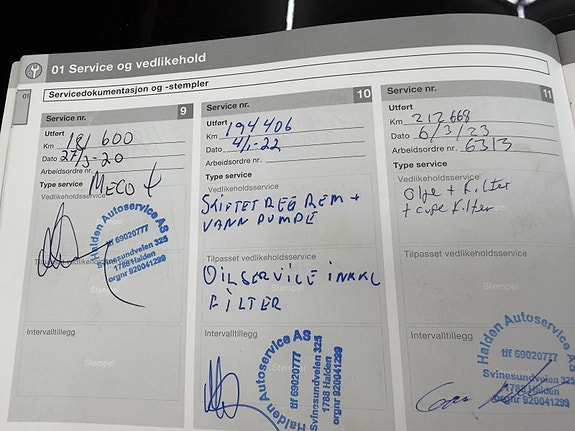 01 Service og vedlikehold
01
Servicedokumentasjon og -stempler
Service nr. 9
Utført
Km 181 600
Dato 27/3-20
Arbeidsordre nr.
Type service
Vedlikeholdsservice
Halden Autoservice AS
tlf 69020777
Svinesundveien 325
1788 Halden
orgnr 920041299
Tilpasset vedlikeholdsservice
Stempel
Intervalltillegg
Stempel
Service nr. 10
Utført
Km 194406
Dato 4/1-22
Arbeidsordre nr.
Type service
Vedlikeholdsservice
SKIFTET REG REM +
VANN PUMPE
Tilpasset vedlikeholdsservice
OILSERVICE INKKL
FILTER
Stempel
Intervalltillegg
Halden Autoservice AS
tlf 69020777
Svinesundveien 325
1788 Halden
orgnr 920041299
Service nr. 11
Utført
Km 212668
Dato 6/3/23
Arbeidsordre nr. 6313
Type service
Vedlikeholdsservice
Olje + Filter
+ Filter
Tilpasset vedlikeholdsservice
Stempel
Intervalltillegg
Halden Autoservice AS
tlf 69020777
Svinesundveien 325
1788 Halden
orgnr 920041299